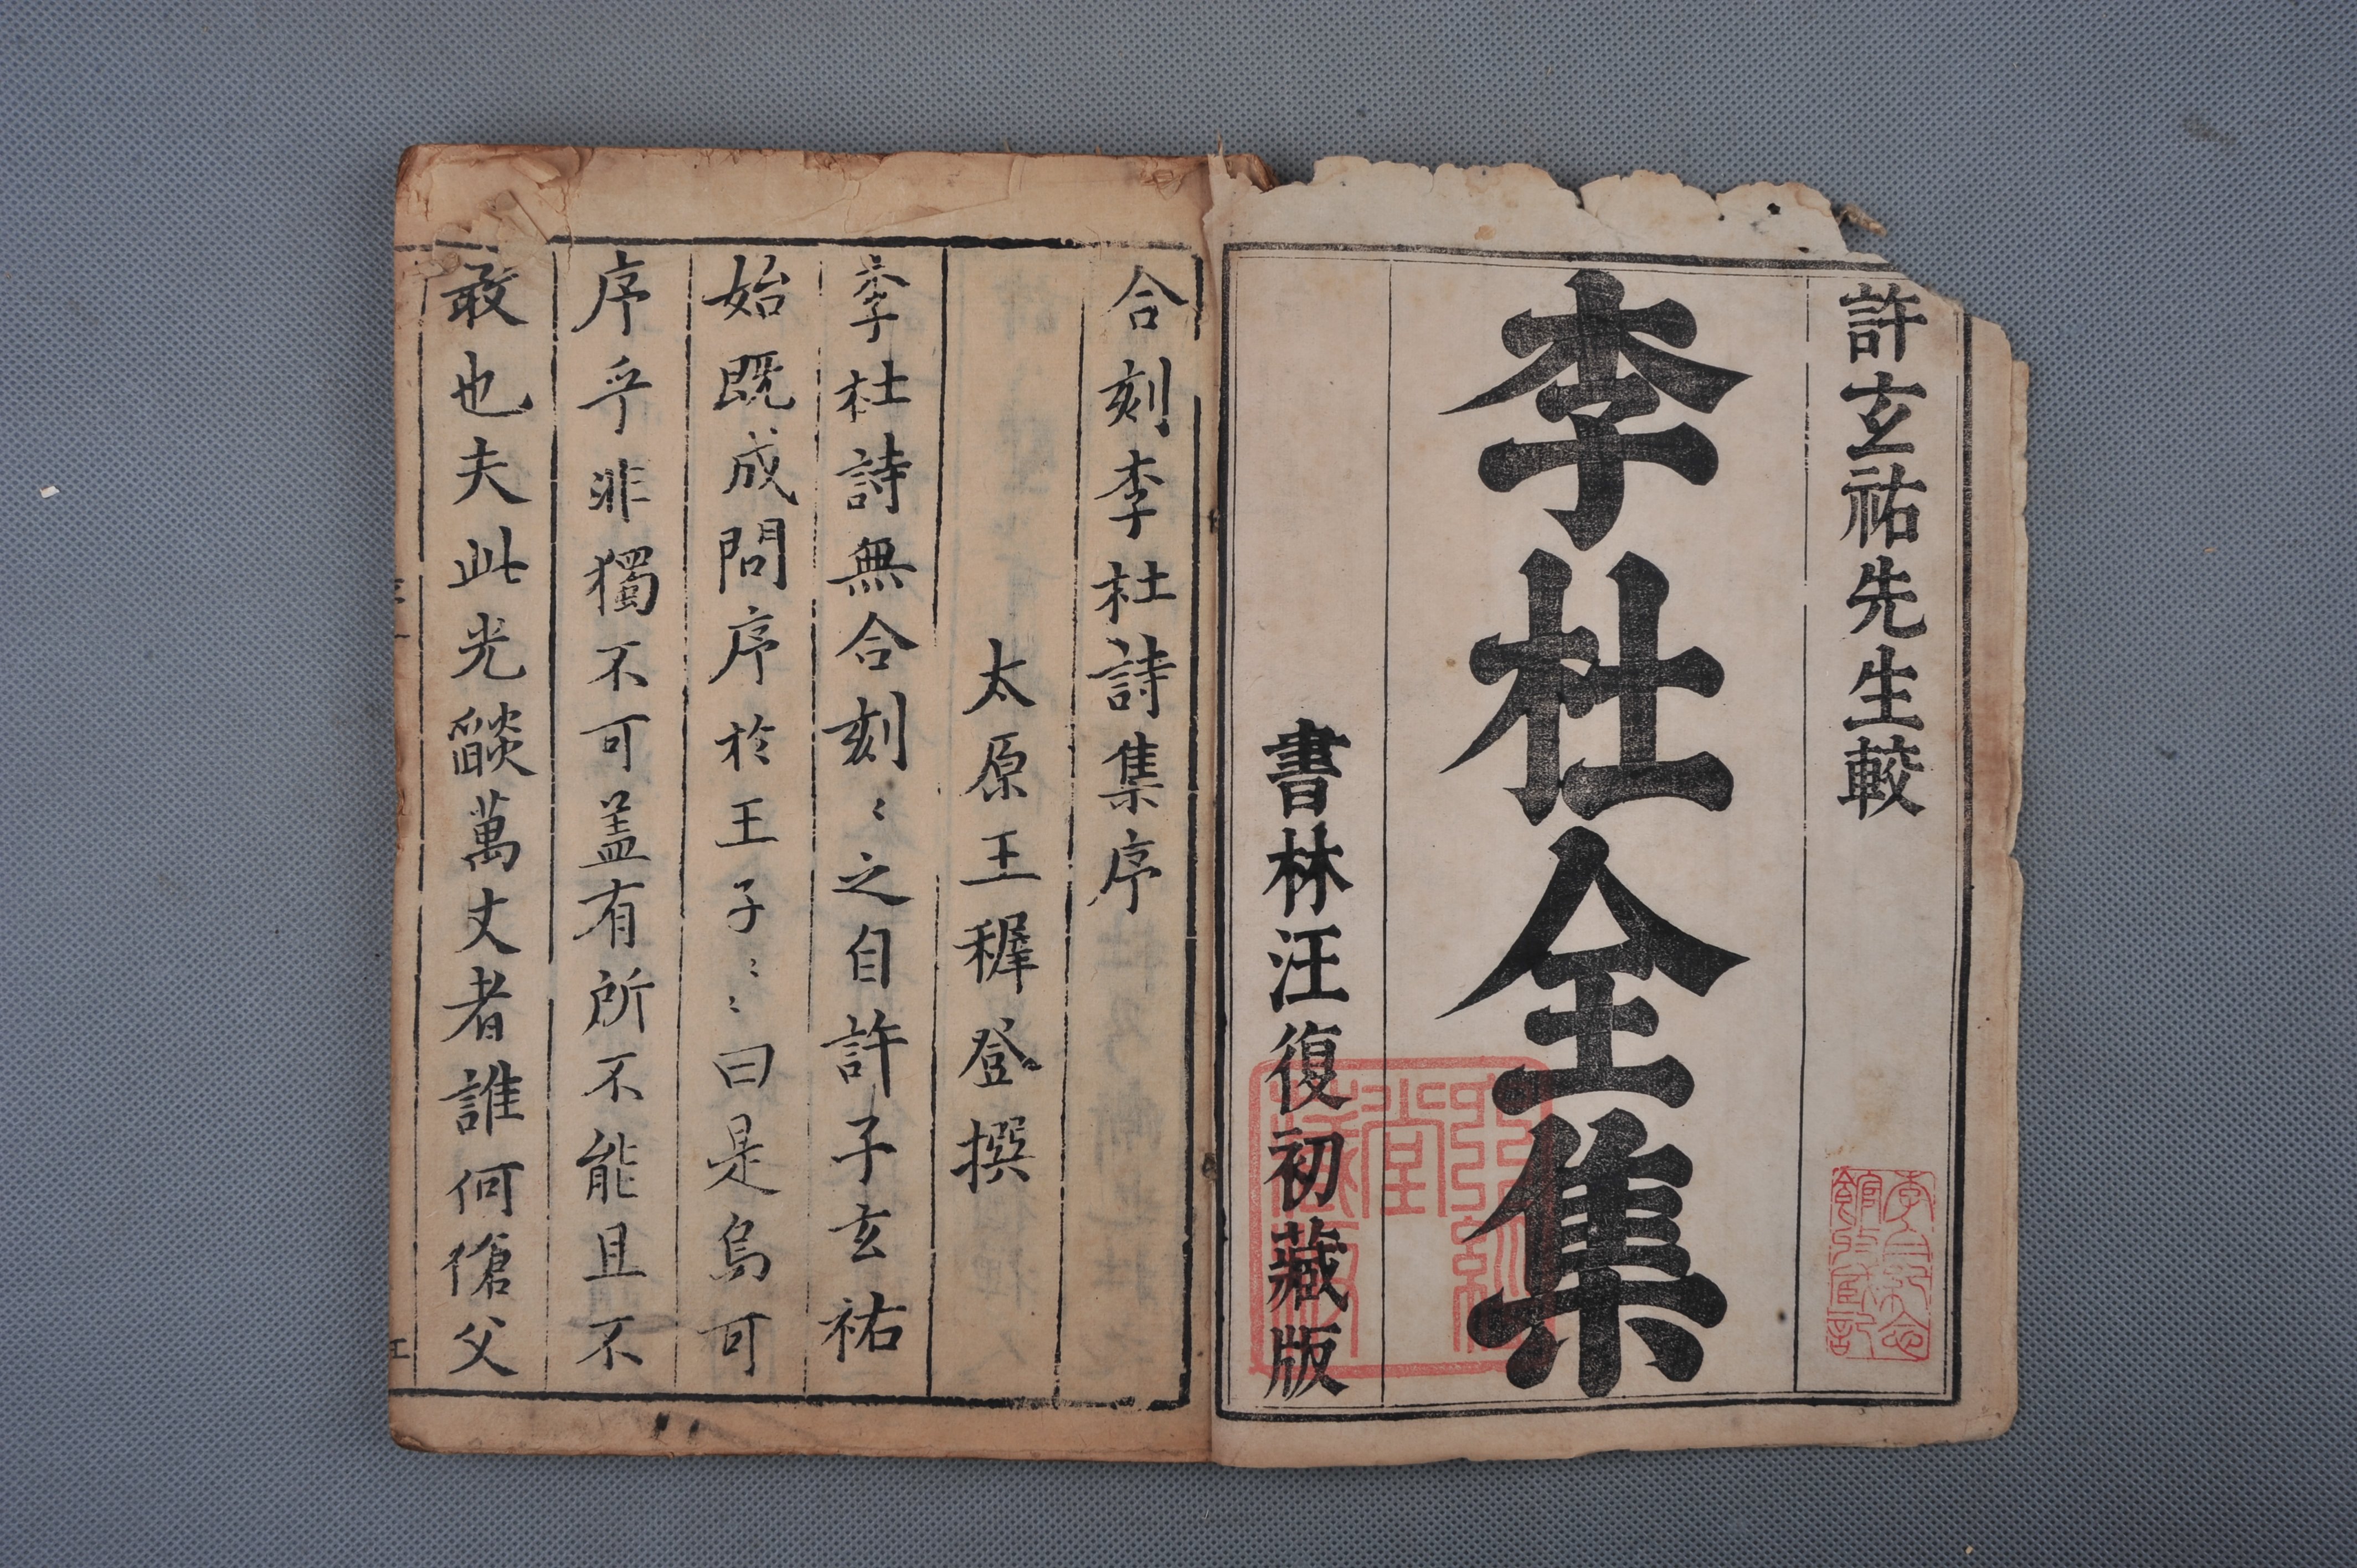 許玄祐先生較
李杜全集
書林汪復初藏版
合刻李杜詩集序
太原王穉登撰
李杜詩無合刻〻之自許子玄祐
始既成問序於王子〻〻曰是烏可
序乎非獨不可盖有所不能且不
敢也夫此光燄萬丈者誰何傖父
李白紀念館收藏記